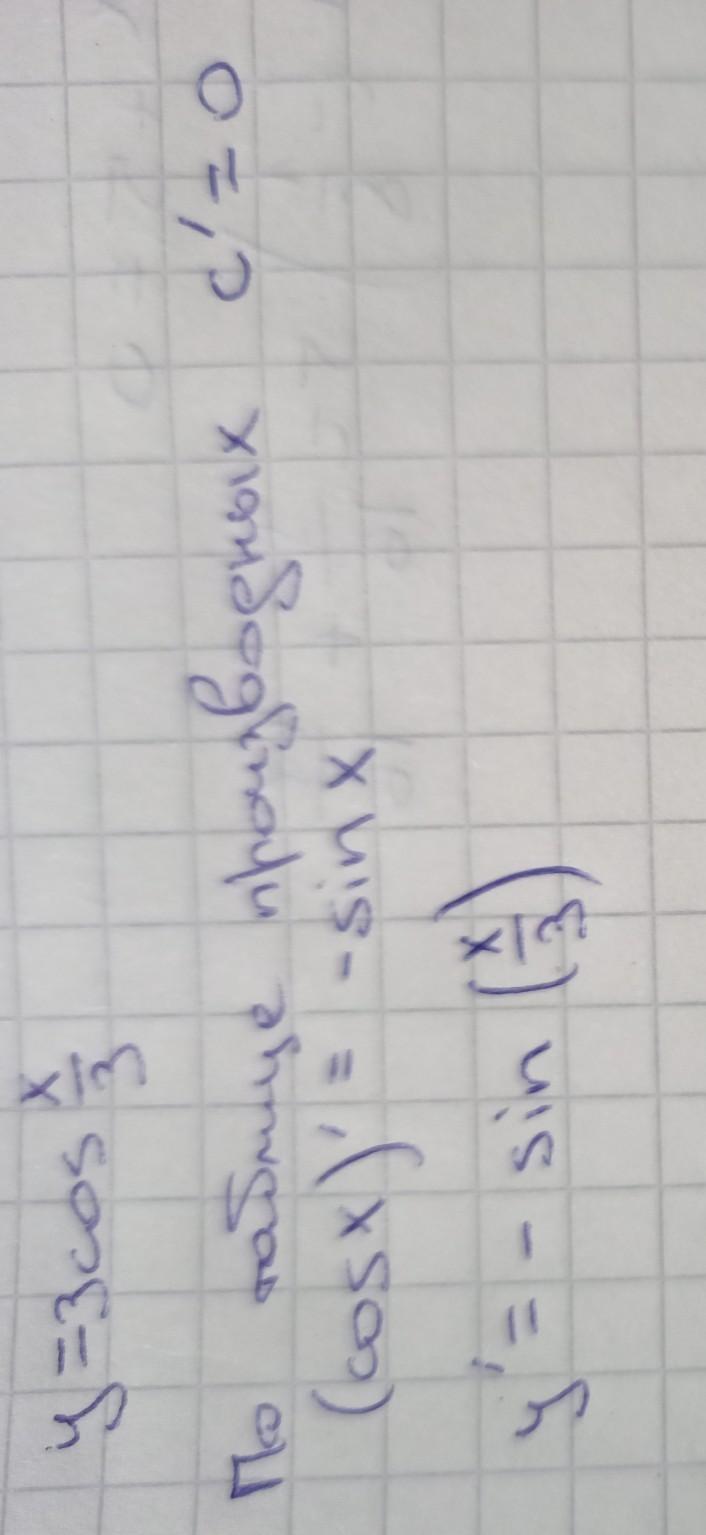 y = 3cos x/3
По таблице производных c' = 0
(cos x)' = - sin x
y' = - sin (x/3)